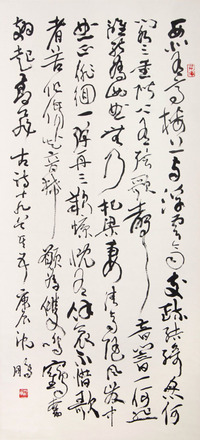 西北有高樓上与浮雲齊交疏結綺窗阿
閣三重階上有弦歌聲音響一何悲
誰能爲此曲無乃杞梁妻清商隨風發中
曲正徘徊一彈再三歎慷慨有餘哀不惜歌
者苦但傷知音稀願爲雙鳴鶴奮
翅起高飛 古詩十九首 庚辰沈鵬